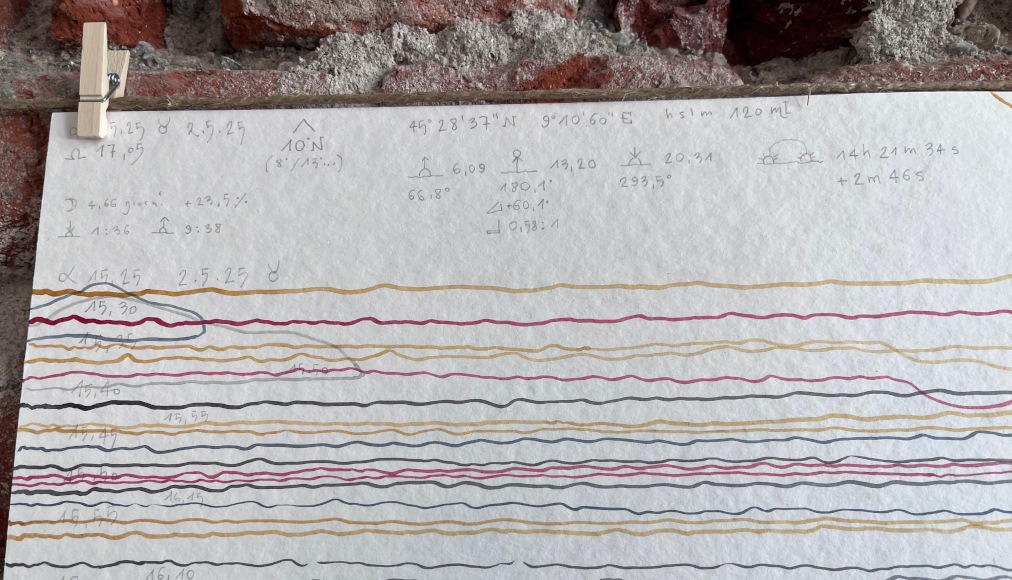 α 15,25 ♉ 2.5.25
Ω 17,05
10°N
(8°/13°...)
45°28'37"N 9°10'60"E hslm 120 m
6,09 13,20 20,31
66.8° 180,1° 293,5°
∠+60,1°
0,58:1
14h 21m 34s
+2m 46s
☽ 4,66 giorni +23,5%
1:36 9:38
α 15,25 2.5.25 ♉
15,30
15,35
15,50
15,40
15,55
15,45
16,15
15,55
16,10